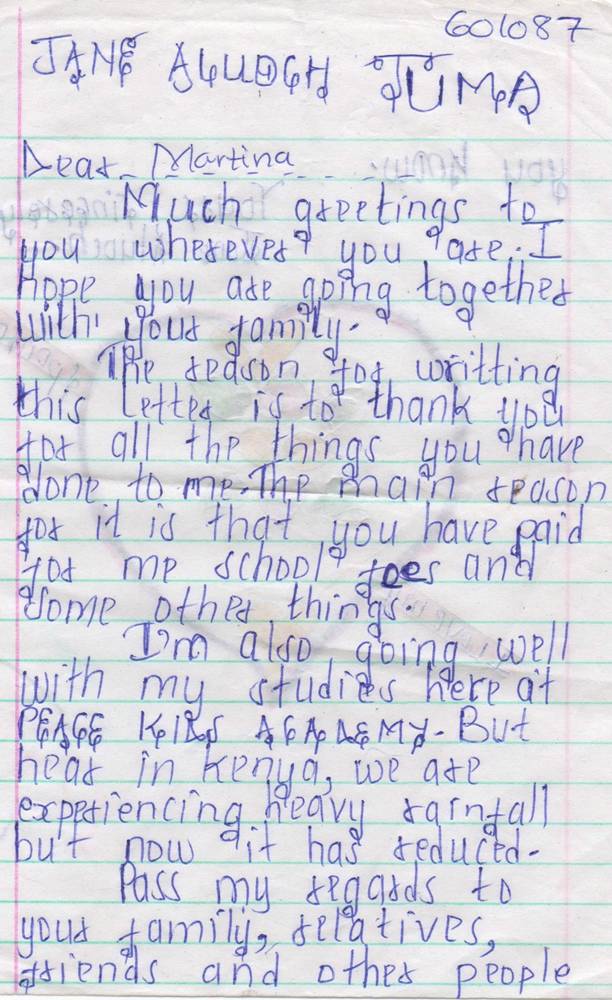 601087
JANE ALUOCH JUMA
Dear Martina
Much greetings to
you wherever you are. I
hope you are going together
with your family.
The reason for writting
this letter is to thank you
for all the things you have
done to me. The main reason
for it is that you have paid
for me school fees and
some other things.
I'm also going well
with my studies here at
PEACE KIDS ACADEMY. But
hear in Kenya, we are
experiencing heavy rainfall
but now it has reduced.
Pass my regards to
your family, relatives,
friends and other people